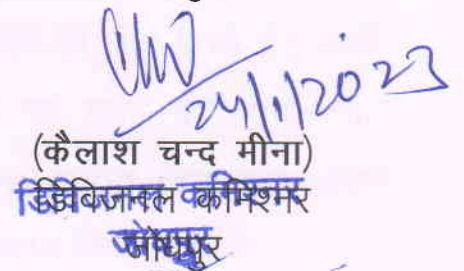 24/1/2023
(कैलाश चन्द मीना)
डिविजनल कमिश्नर
जोधपुर